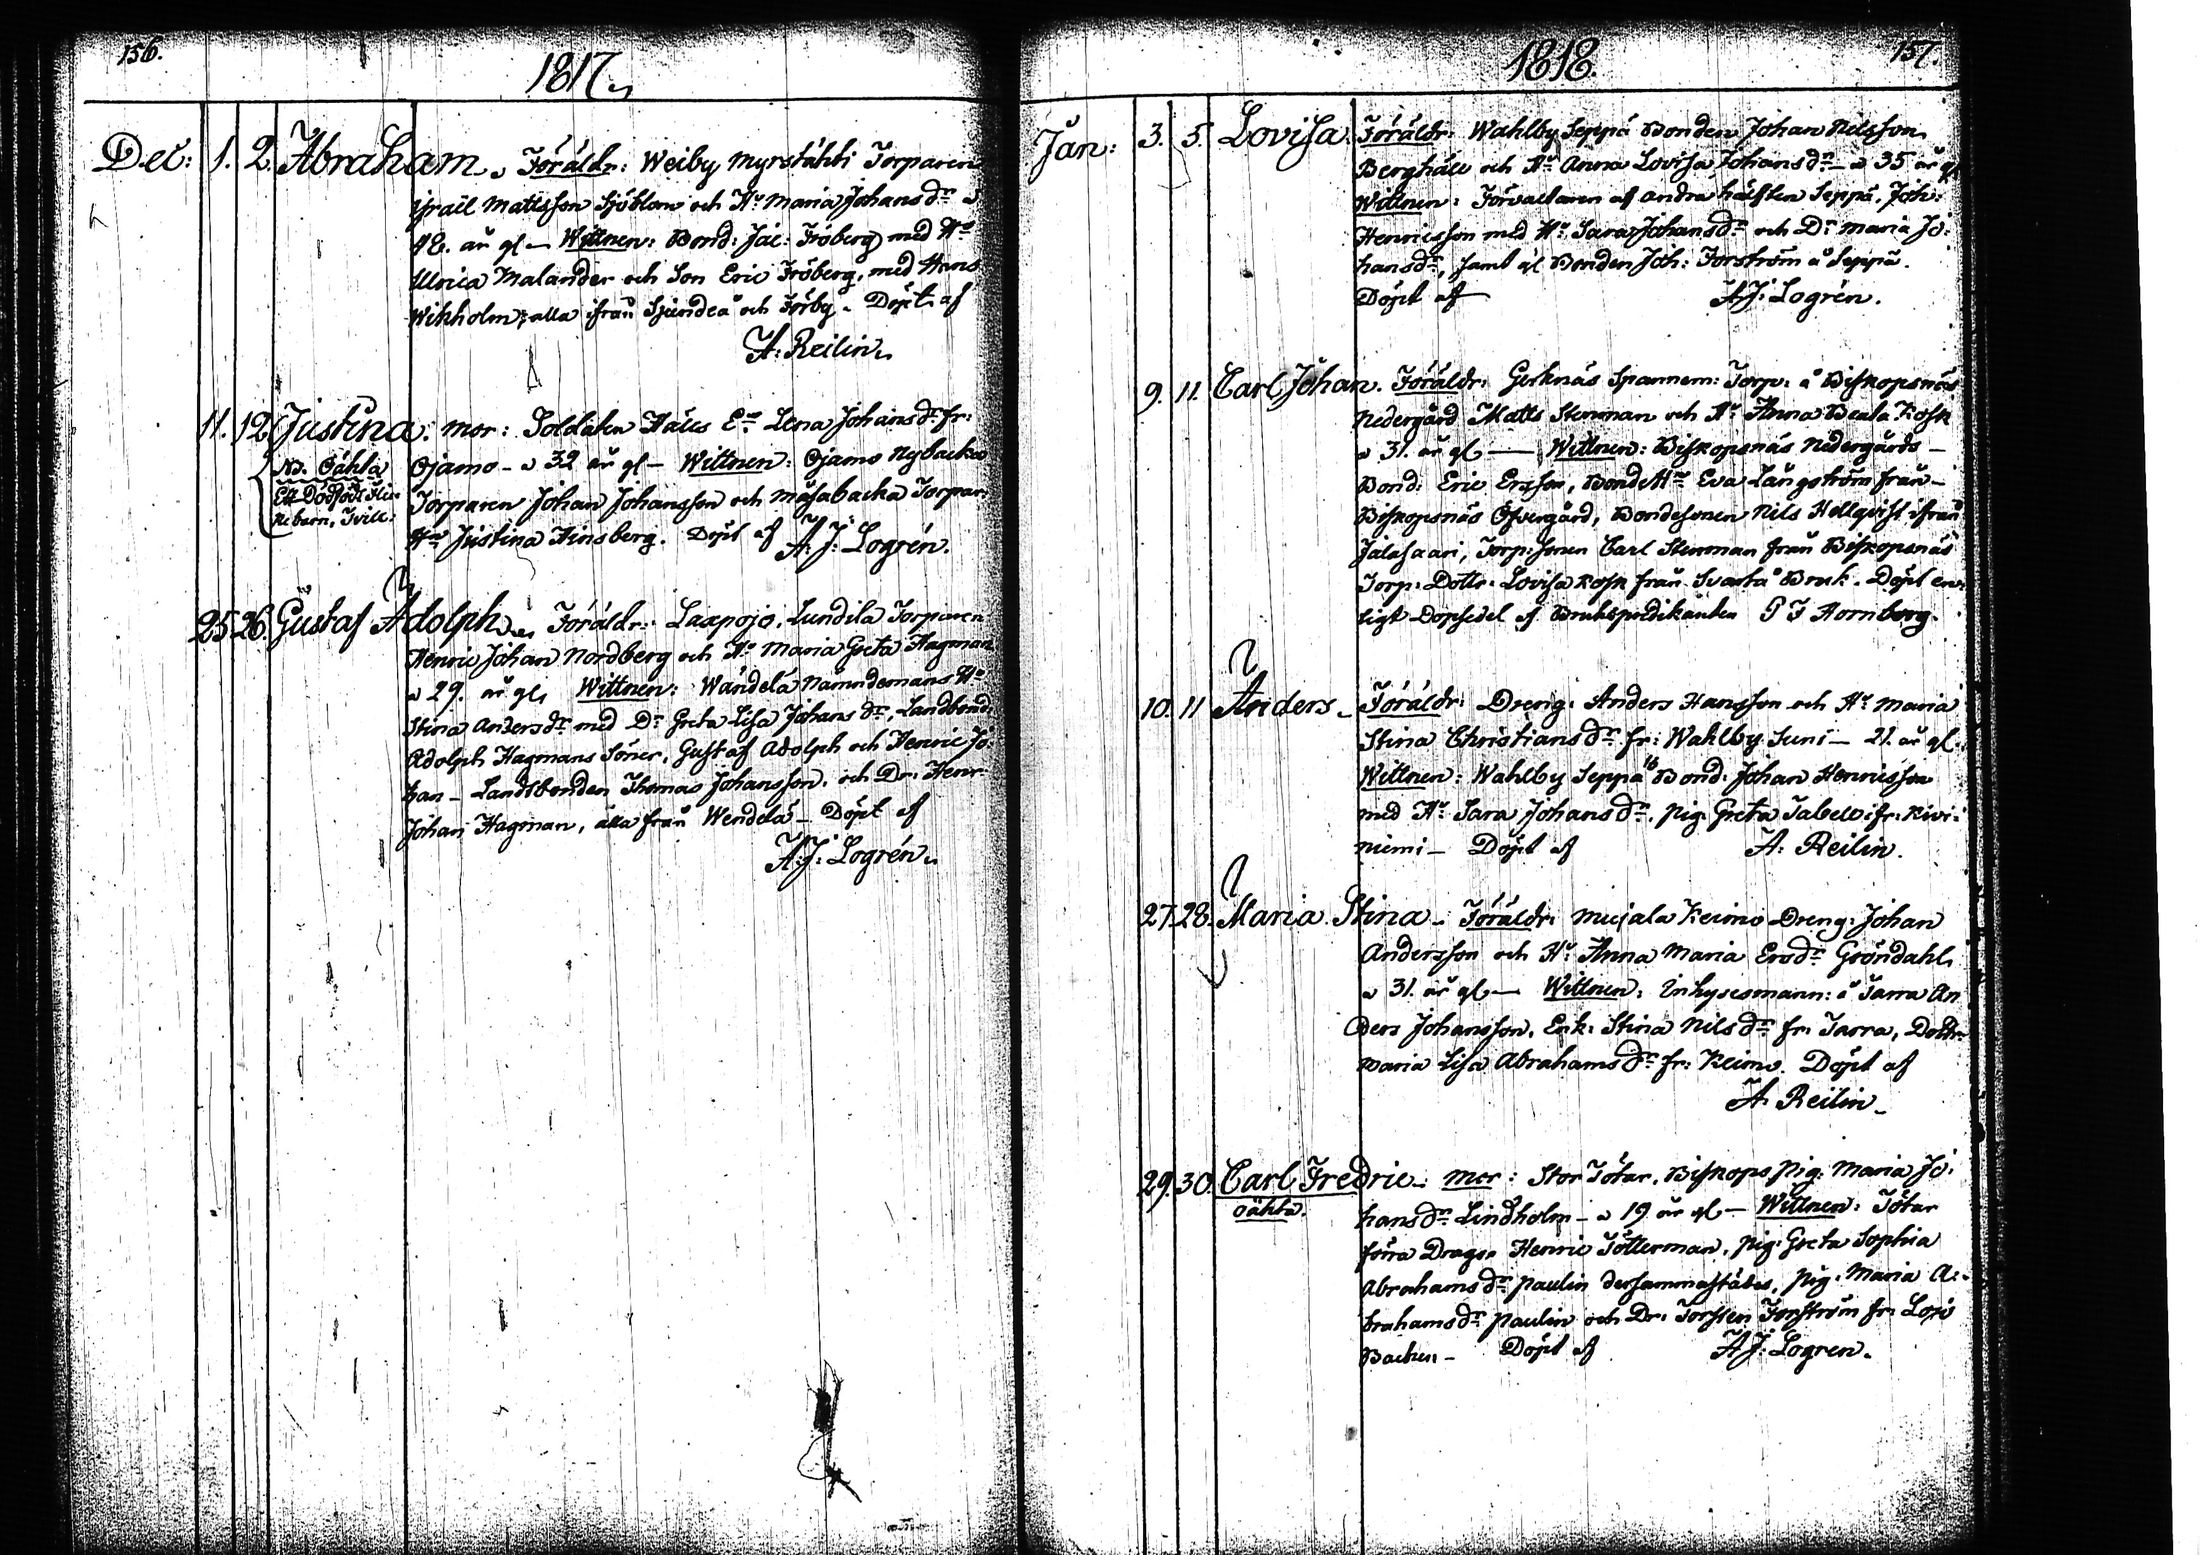 156.
1817.
Dec: 1. 2. Abraham. Föräldr: Weiby Myrstähti Torparen
Israel Mattsson Sjöblom och Hu Maria Johansdr
år gl - Wittnen: Bond: Jac: Fröberg med Hu
Ulrica Malander och Son Eric Fröberg, med Hans
Wikholm, alla ifrån Sjundeå och Förby. Döpt af
A: Reilin.
11. 12. Justina. mor: Soldaten Hälls En Lena Johansdr fr:
NB. Oäkta
Ett Dödfödt
barn, Tvill:
Ojamo - 32 år gl - Wittnen: Ojamo Nybacka
Torparen Johan Johansson och Måsabacka Torpar:
Hu Justina Hinsberg. Döpt af A: J: Logrén.
25 26. Gustaf Adolph. Föräldr: Laxpojo, Lundila Torparen
Henric Johan Nordberg och Hu Maria Greta Hagman
29. år gl, Wittnen: Wändelä Nämndemans Hu
Stina Andersdr med Dr Greta Lisa Johansdr, Landbond:
Adolph Hagmans Söner, Gustaf Adolph och Henric Jo-
han - Landtbonden Thomas Johansson, och Dr: Henr:
Johan Hagman, alla från Wendelä - Döpt af
A: J: Logrén.
1818.
157.
Jan: 3. 5. Lovisa. Föräldr: Wahlby Seppä Bonden Johan Nilsson
Berghäll och Hu Anna Lovisa Johansdr - 35 år gl
Wittnen: Förvaltaren af andra hälften Seppä, Joh:
Henricsson med Hu Sara Johansdr och Dr Maria Jo-
hansdr, samt gl Bonden Joh: Forström å Seppä.
Döpt af A: J: Logrén.
9. 11. Carl Johan. Föräldr: Gerknäs Spannem: Torp: å Biskopsnäs
Nedergård Matts Stenman och Hu Anna Beata Kosk
31. år gl - Wittnen: Biskopsnäs Nedergårds -
Bond: Eric Ersson, Bond Hu Eva Långström från -
Biskopsnäs Öfvergård, Bondesonen Nils Hellqvist ifrån
Jalasaari, Torp: Sonen Carl Stenman från Biskopsnäs
Torp: Dottr: Lovisa Kosk från Svartå Bruk. Döpt en-
ligt Dopsedel af Brukspredikanten P J Hornborg.
10. 11 Anders - Föräldr: Dreng: Anders Hansson och Hu Maria
Stina Christiansdr fr: Wahlby Suni - 21. år gl.
Wittnen: Wahlby Seppä Bond: Johan Henricsson
med Hu Sara Johansdr, Pig: Greta Tabell ifr: Kivi-
niemi - Döpt af A: Reilin.
27. 28. Maria Stina. Föräldr: Muijala Keimo Dreng: Johan
Andersson och Hu Anna Maria Ersdr Gröndahl
31. år gl - Wittnen: Inhysesmann: å Tarra An
ders Johansson, Enk: Stina Nilsdr fr: Tarra, Dottr:
Maria Lisa Abrahamsdr fr: Keimo. Döpt af
A: Reilin
29. 30. Carl Fredric. Mor: Stor Tötar, Biskops Pig: Maria Jo-
oäkta.
hansdr Lindholm - 19 år gl - Wittnen: Tötar
förra Drag: Henric Tötterman, Pig: Greta Sophia
Abrahamsdr Paulin dersammastädes, Pig: Maria A-
brahamsdr Paulin och Dr: Torsten Forström fr: Lojo
Backen - Döpt af A: J: Logren.